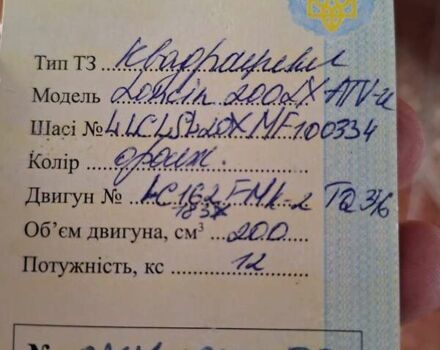 Тип ТЗ Квадроцикл
Модель Loncin 200ZX-ATV-u
Шасі № 4LCLSL20XMF100334
Колір оранж.
Двигун № LC162FMK-2
Об'єм двигуна, см³ 200
Потужність, кс 12